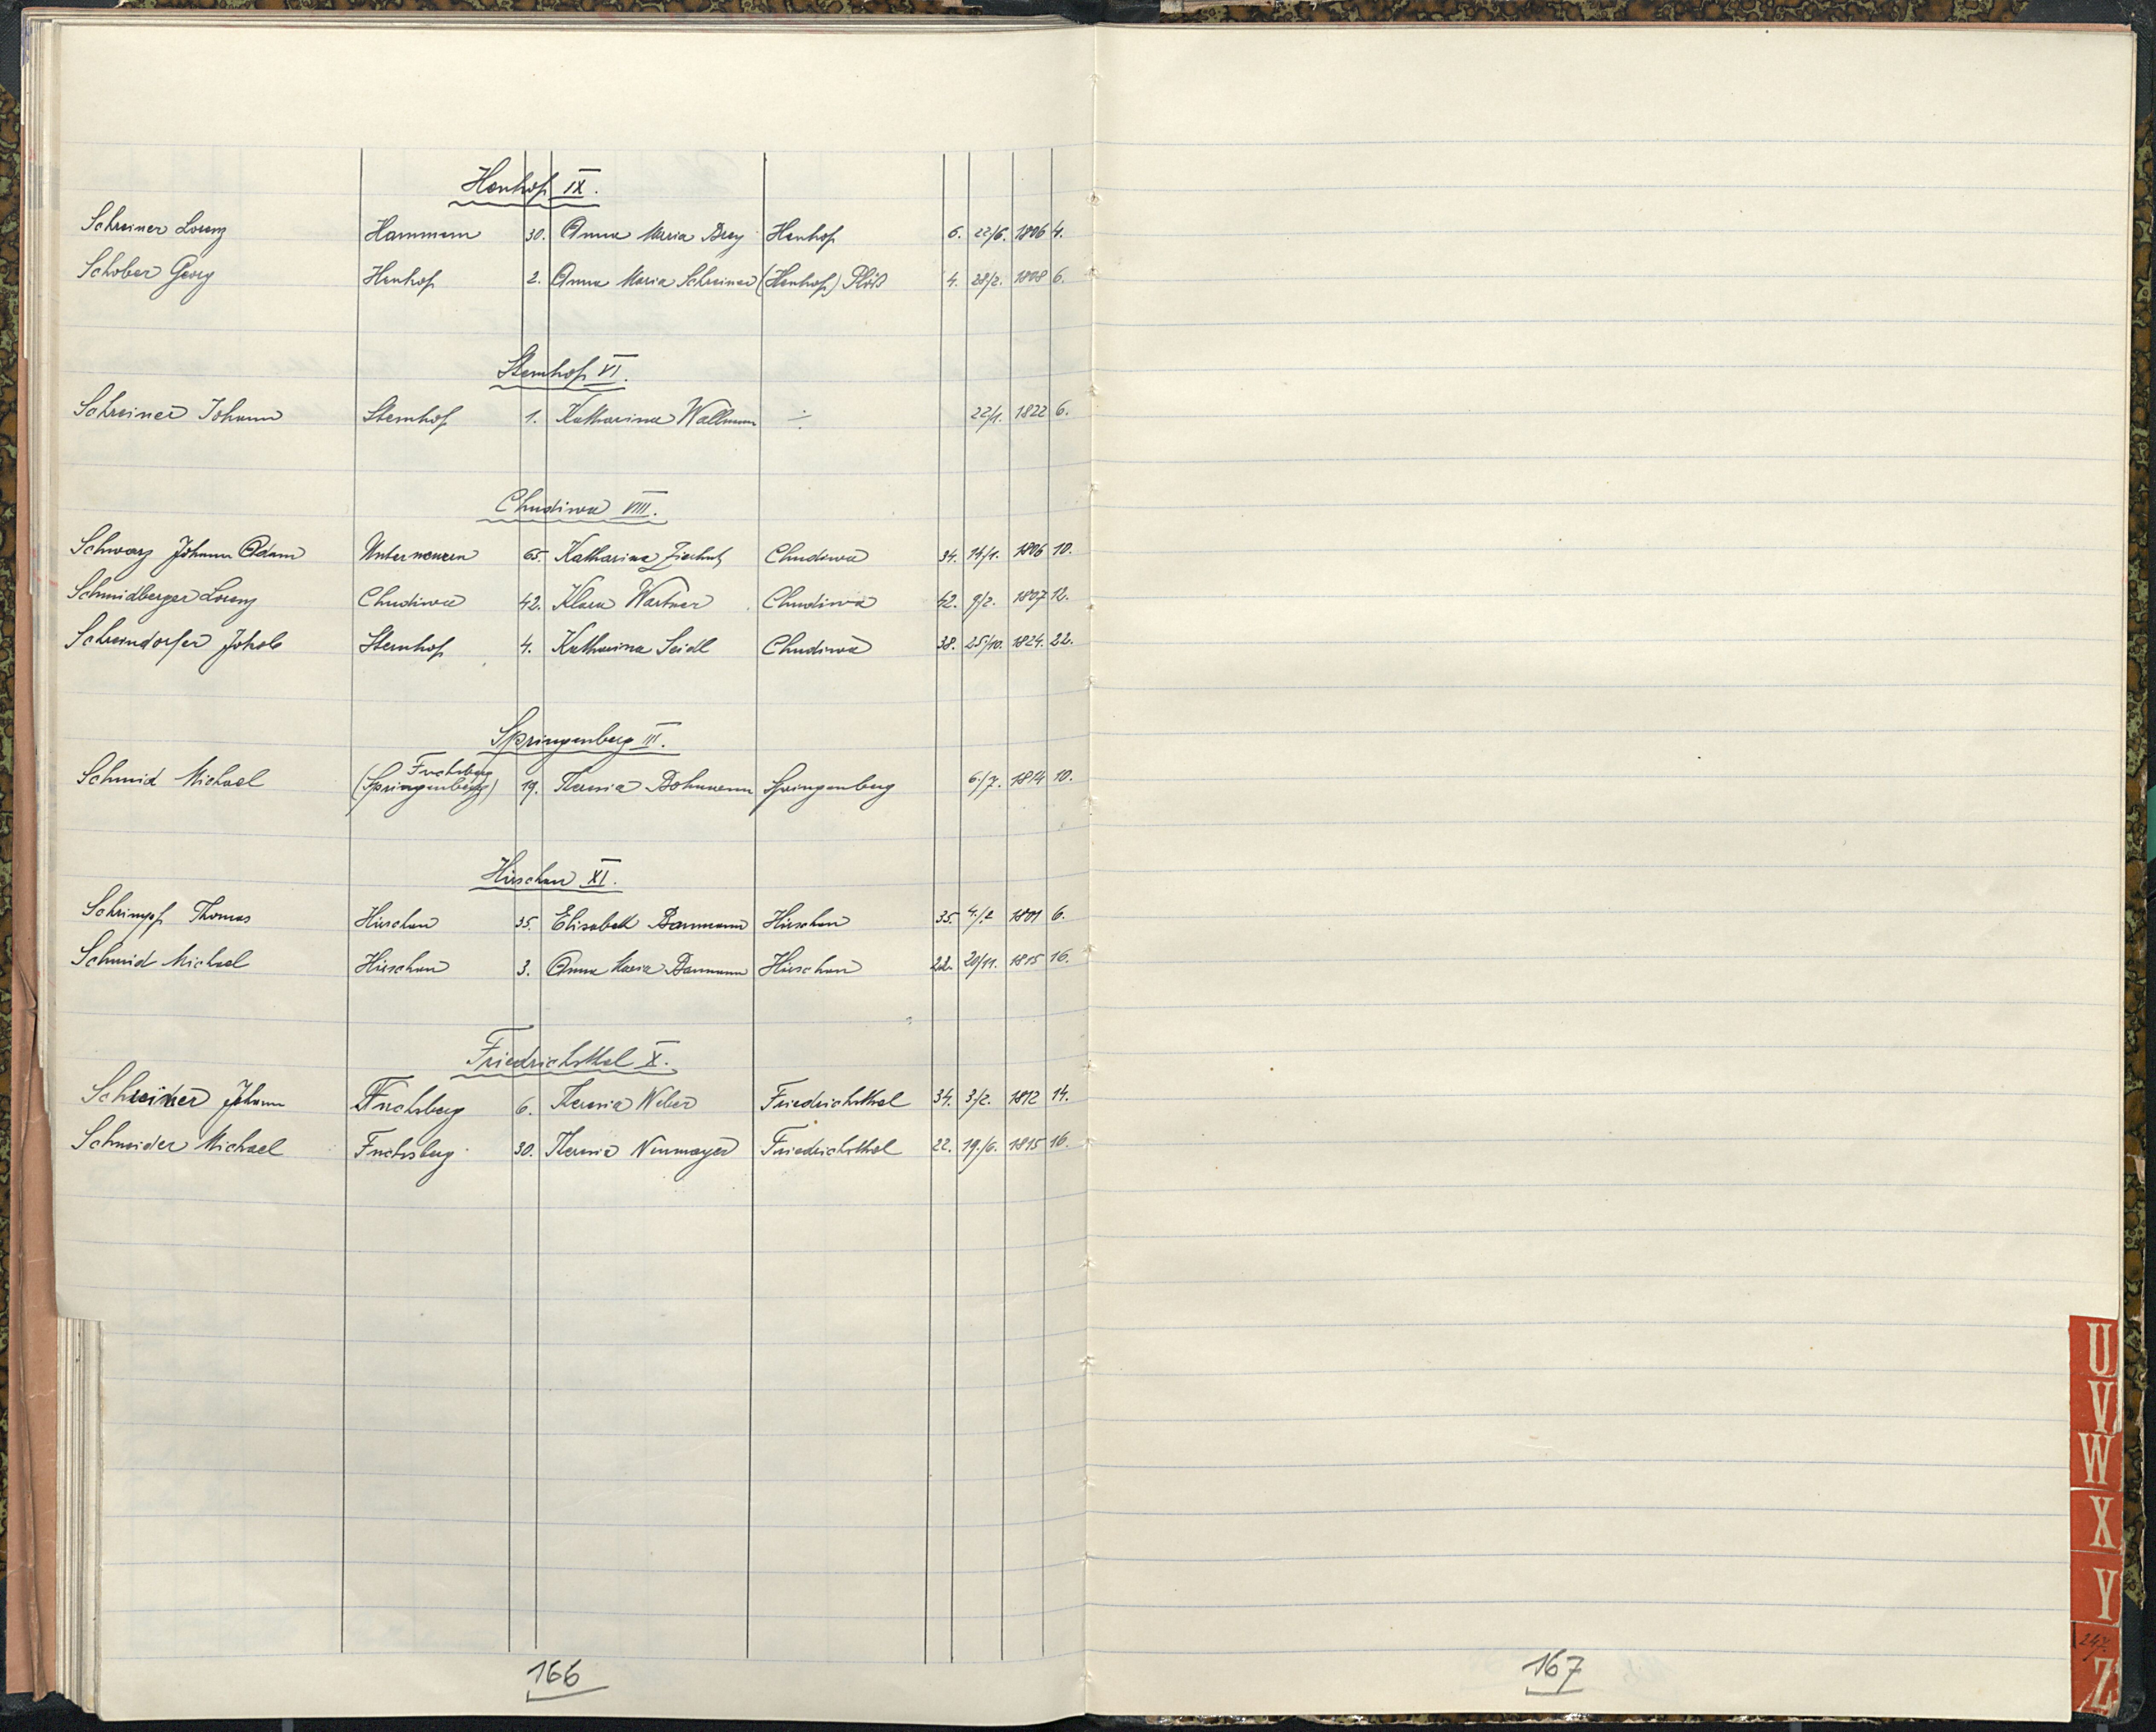 Henhof IX.
Schreiner Lorenz Hammern 30. Anna Maria Brey Henhof 6. 22/6. 1806 4.
Schober Georg Henhof 2. Anna Maria Schreiner (Henhof) Plöß 4. 28/2. 1808 6.
Stemhof VI.
Schreiner Johann Stemhof 1. Katharina Wallmann ÷ 22/1. 1822 6.
Chudiwa VIII.
Schwarz Johann Adam Unterneuern 65. Katharina Chudiwa 34. 14/1. 1806 10.
Schmidberger Lorenz Chudiwa 42. Klara Wartner Chudiwa 42. 9/2. 1807 12.
Schreindorfer Jakob Stemhof 4. Katharina Seidl Chudiwa 38. 25/10. 1824. 22.
Springenberg III.
Fuchsberg
Schmid Michael (Springenberg) 19. Theresia Bohmann Springenberg 6./7. 1814 10.
Hirschau XI.
Schrimpf Thomas Hirschau 35. Elisabeth Baumann Hirschau 35. 4./2 1801 6.
Schmid Michael Hirschau 3. Anna Maria Baumann Hirschau 22. 20/11. 1815 16.
Friedrichsthal X.
Schreiner Johann Fuchsberg 6. Theresia Weber Friedrichsthal 34. 3/2. 1812 14.
Schneider Michael Fuchsberg 30. Theresia Neumayer Friedrichsthal 22. 19./6. 1815 16.
166
167
U
V
W
X
Y
247.
Z